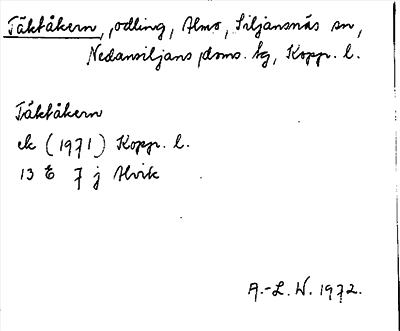 Täktåkern, odling, Almo, Siljansnäs sn,
Nedansiljans doms. tg, Kopp. l.
Täktåkern
ek (1971) Kopp. l.
13 E 7 j Alvik
A.-L. W. 1972.